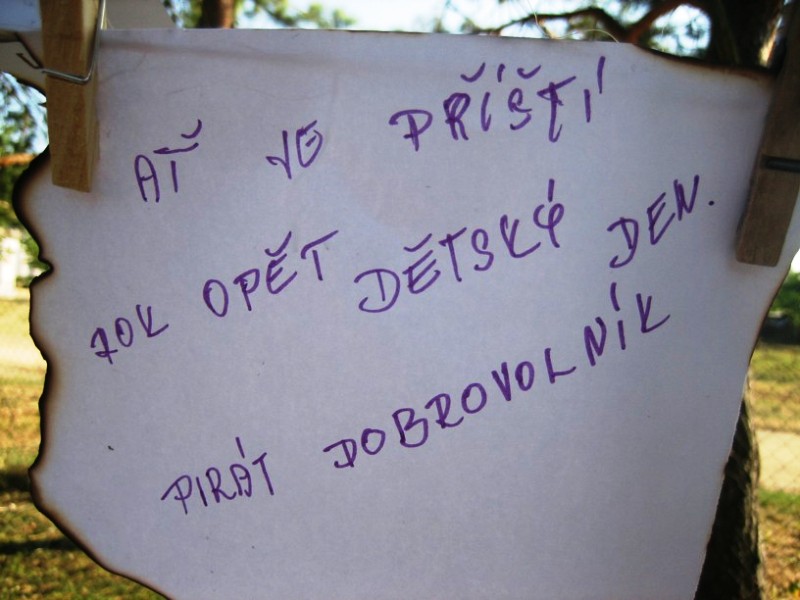 AŤ VE PŘÍŠTÍ
ROK OPĚT DĚTSKÝ DEN.
PIRÁT DOBROVOLNÍK